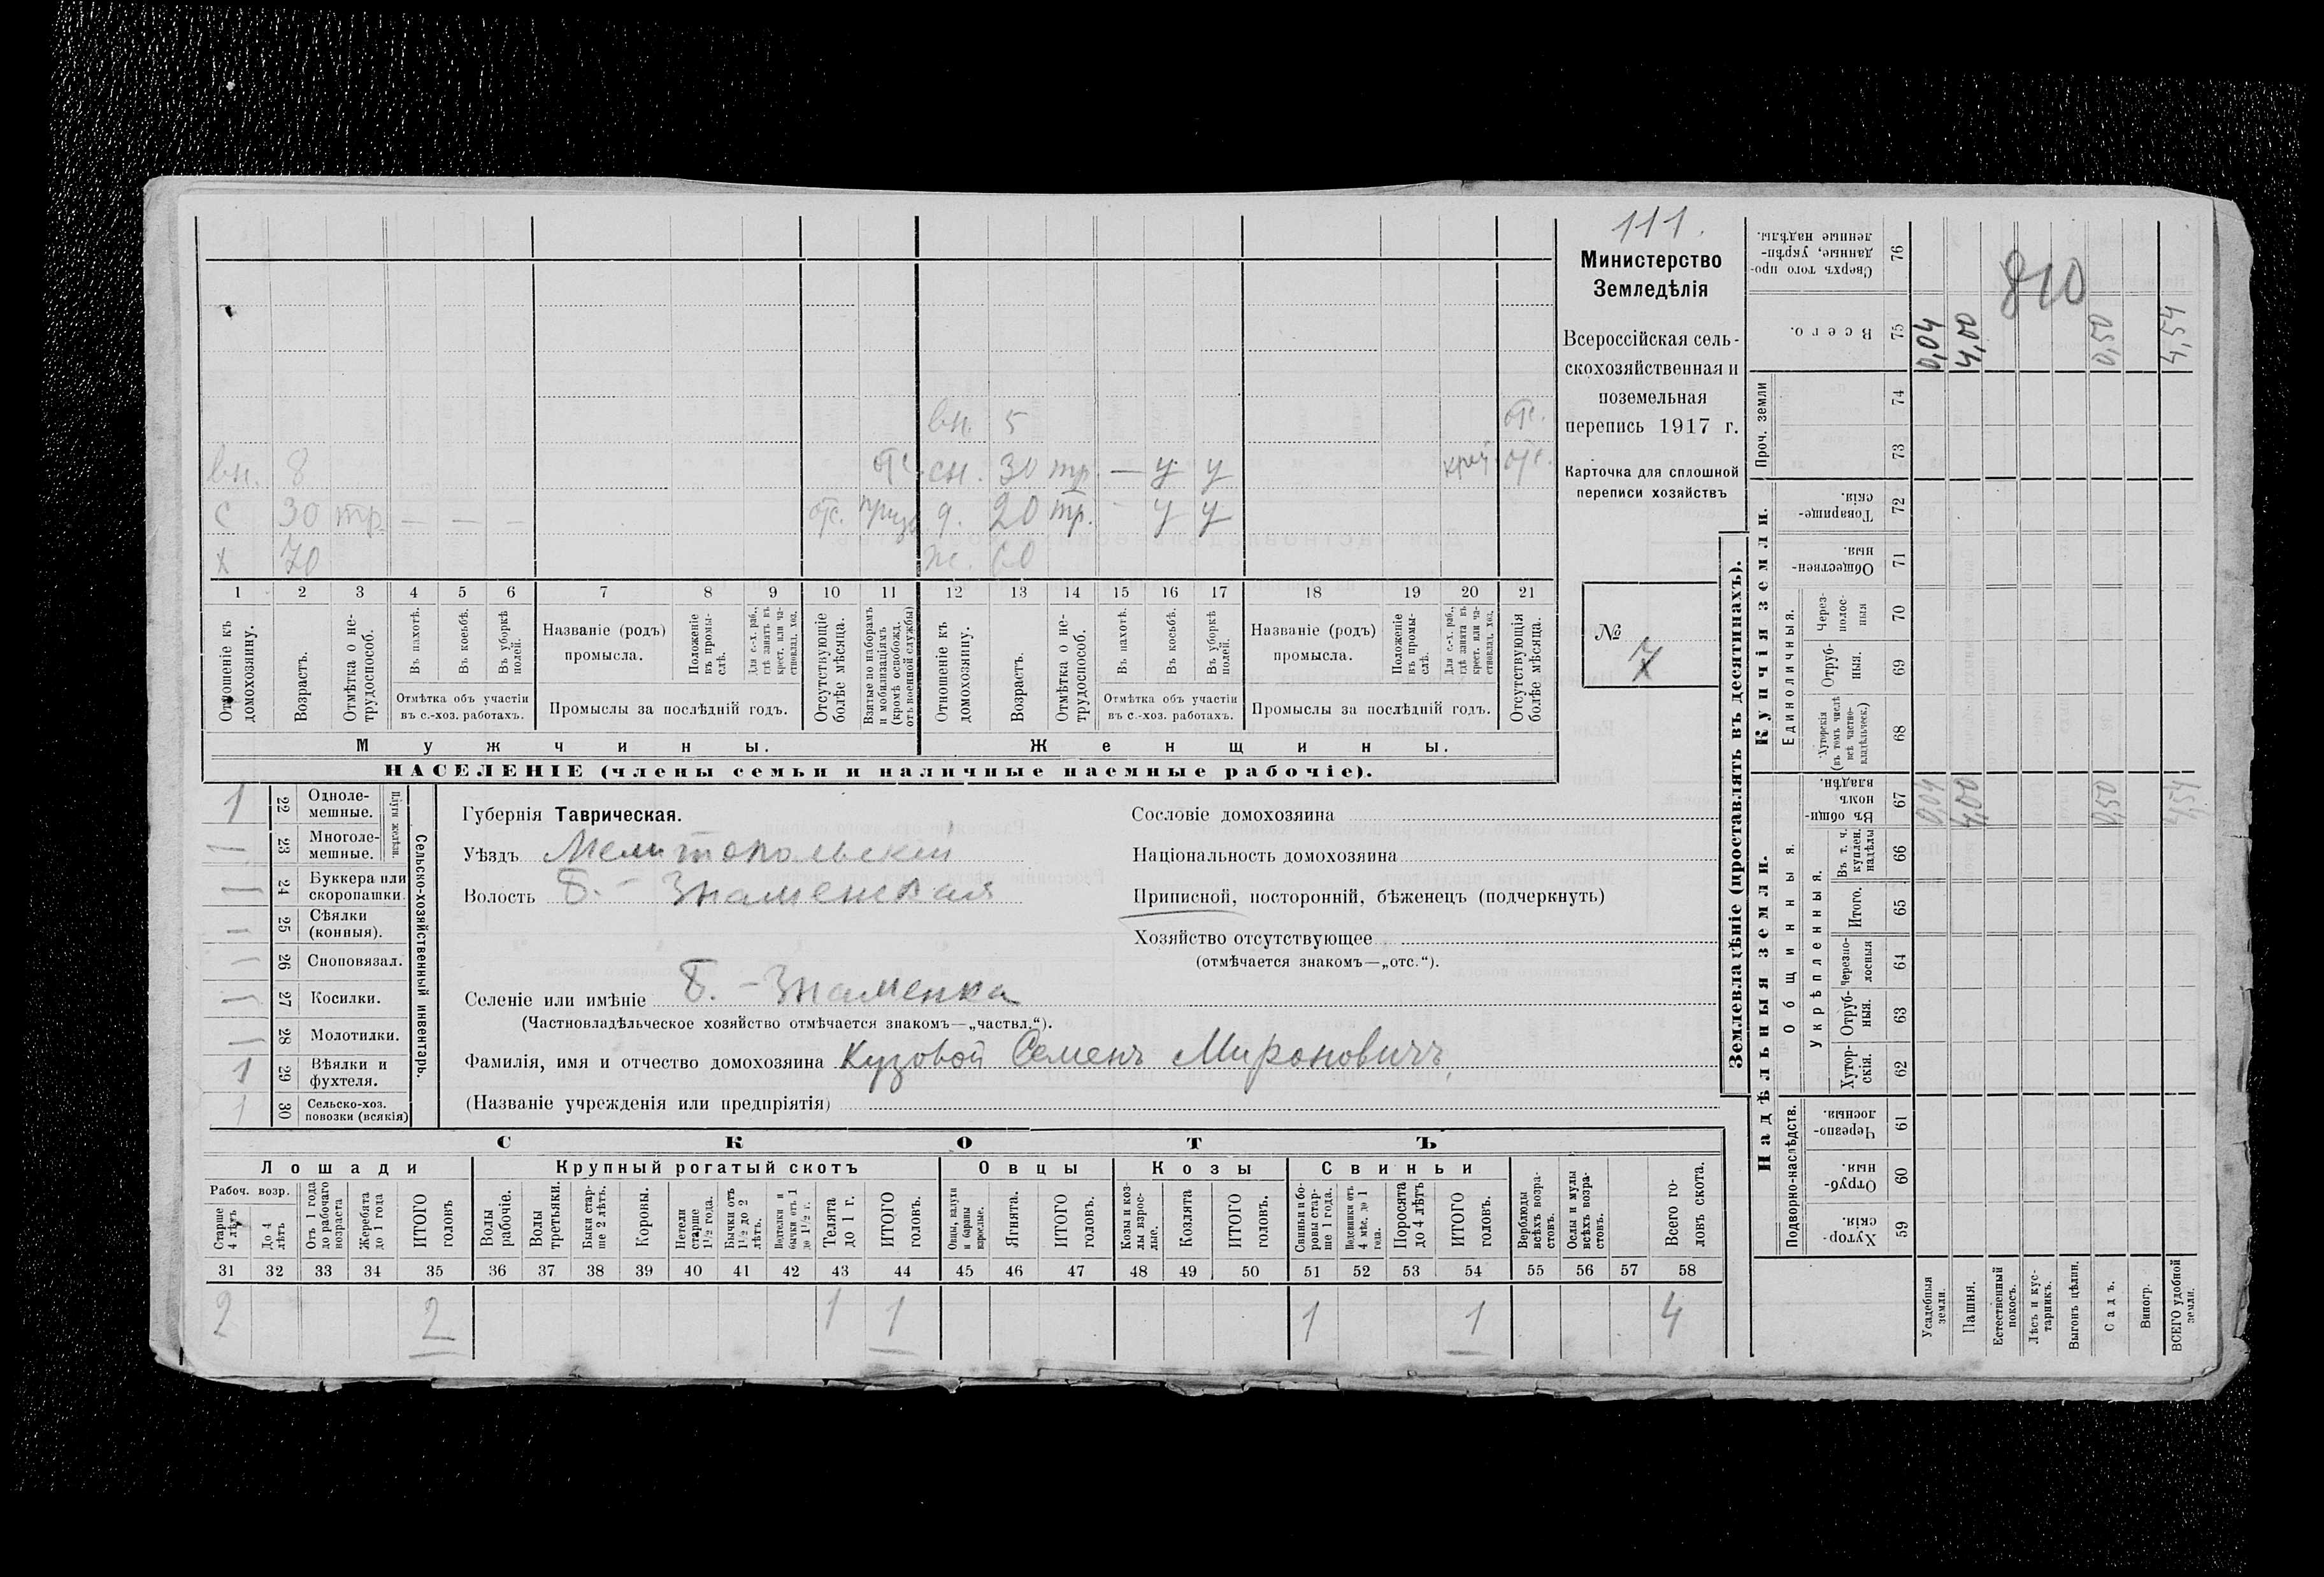 111.
Министерство
Земледѣлія
Всероссійская сель-
скохозяйственная и
поземельная
перепись 1917 г.
Карточка для сплошной
переписи хозяйствъ
№ 7
810
вн. 5 отс.
вн. 8 отс. сн. 30 тр. — у у отс.
с 30 тр. — — — отс. д. 20 тр. - у у
х 70 ж. 60
1 2 3 4 5 6 7 8 9 10 11 12 13 14 15 16 17 18 19 20 21
Отношеніе къ домохозяину.
Возрастъ.
Отмѣтка о не-трудоспособ.
Въ пахотѣ.
Въ косьбѣ.
Въ уборкѣ полей.
Отмѣтка объ участіи
въ с.-хоз. работахъ.
Названіе (родъ)
промысла.
Положеніе въ промы-слѣ.
Для с.-х. раб., гдѣ занятъ въ крест. или ча-стновлад. хоз.
Промыслы за послѣдній годъ.
Отсутствующіе болѣе мѣсяца.
Взятые по наборамъ и мобилизаціямъ (кромѣ освобожд. отъ военной службы)
Отношеніе къ домохозяину.
Возрастъ.
Отмѣтка о не-трудоспособ.
Въ пахотѣ.
Въ косьбѣ.
Въ уборкѣ полей.
Отмѣтка объ участіи
въ с.-хоз. работахъ.
Названіе (родъ)
промысла.
Положеніе въ промы-слѣ.
Для с.-х. раб., гдѣ занята въ крест. или ча-стновлад. хоз.
Промыслы за послѣдній годъ.
Отсутствующія болѣе мѣсяца.
Мужчины.
Женщины.
НАСЕЛЕНІЕ (члены семьи и наличные наемные рабочіе).
Сельско-хозяйственный инвентарь.
1 22 Однолемешные.
— 23 Многолемешные.
— 24 Буккера или скоропашки.
— 25 Сѣялки (конныя).
— 26 Сноповязал.
— 27 Косилки.
— 28 Молотилки.
1 29 Вѣялки и фухтеля.
1 30 Сельско-хоз. повозки (всякія)
Губернія Таврическая.
Уѣздъ Мелитопольскій
Волость Б.-Знаменская
Селеніе или имѣніе Б.-Знаменка
(Частновладѣльческое хозяйство отмѣчается знакомъ—„частвл.“).
Фамилія, имя и отчество домохозяина Кузовой Семенъ Мироновичъ,
(Названіе учрежденія или предпріятія)
Сословіе домохозяина
Національность домохозяина
Приписной, посторонній, бѣженецъ (подчеркнуть)
Хозяйство отсутствующее
(отмѣчается знакомъ—„отс.“).
СКОТЪ
Лошади Крупный рогатый скотъ Овцы Козы Свиньи
Рабоч. возр.
Старше 4 лѣтъ
До 4 лѣтъ
Отъ 1 года до рабочаго возраста
Жеребята до 1 года
ИТОГО головъ
Волы рабочіе.
Волы третьяки.
Быки стар-ше 2 лѣтъ.
Коровы.
Нетели старше 1 1/2 года.
Бычки отъ 1 1/2 до 2 лѣтъ.
Подтелки и бычки отъ 1 до 1 1/2 г.
Телята до 1 г.
ИТОГО головъ.
Овцы, валухи и бараны взрослые.
Ягнята.
ИТОГО головъ.
Козы и коз-лы взрос-лые.
Козлята
ИТОГО головъ.
Свиньи и бо-ровы стар-ше 1 года.
Подсвинки отъ 4 мѣс. до 1 года.
Поросята до 4 лѣтъ
ИТОГО головъ.
Верблюды всѣхъ возра-стовъ.
Ослы и мулы всѣхъ возра-стовъ.
Всего го-ловъ скота.
31 32 33 34 35 36 37 38 39 40 41 42 43 44 45 46 47 48 49 50 51 52 53 54 55 56 57 58
2 2 1 1 1 1 4
Землевладѣніе (проставлять въ десятинахъ).
Надѣльныя земли.
Купчія земли.
Проч. земли
Сверхъ того про-данные, укрѣп-ленные надѣлы. 76
Всего. 75 0,04 4,00 0,50 4,54
74
73
Товарище-скія. 72
Обществен-ныя. 71
Единоличныя.
Через-полос-ныя 70
Отруб-ныя. 69
Хуторскія (въ томъ числѣ всѣ частно-владѣльческ.) 68
Общинныя.
Въ общи-номъ владѣн. 67 0,04 4,00 0,50 4,54
Укрѣпленныя.
Въ т. ч. куплен. надѣлы 66
Итого. 65
Черезпо-лосныя 64
Отруб-ныя. 63
Хутор-скія. 62
Подворно-наслѣдств.
Черезпо-лосныя. 61
Отруб-ныя. 60
Хутор-скія. 59
Усадебныя земли.
Пашня.
Естественный покосъ.
Лѣсъ и кус-тарникъ.
Выгонъ цѣлин.
Садъ.
Виногр.
ВСЕГО удобной земли.